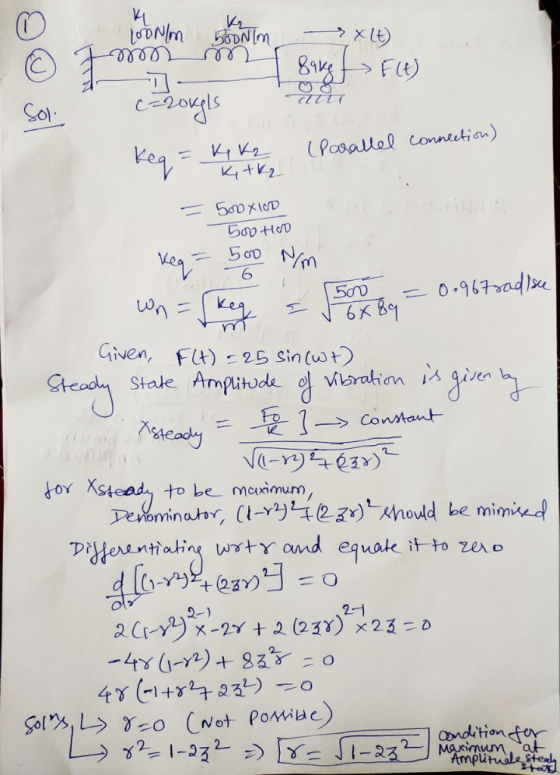 ①
K₁ K₂
100N/m 500N/m → x(t)
C 89kg → F(t)
C=20kg/s
Sol:
Keq = K₁ K₂ / K₁+K₂ (Parallel connection)
= 500×100 / 500+100
Keq = 500/6 N/m
ωn = √(keq/m) = √(500/6×89) = 0.967rad/sec
Given, F(t) = 25 sin(ωt)
Steady state Amplitude of vibration is given by
Xsteady = F₀/K ] → constant / √(1-r²)²+(2ʒr)²
for Xsteady to be maximum,
Denominator, (1-r²)²+(2ʒr)² should be mimised
Differentiating wrt r and equate it to zero
d/dr [(1-r²)²+(2ʒr)²] = 0
2(1-r²)²⁻¹×-2r + 2(2ʒr)²⁻¹×2ʒ = 0
-4r(1-r²) + 8ʒ²r = 0
4r(-1+r²+2ʒ²) = 0
Solⁿs ↳ r=0 (Not Possible)
↳ r² = 1-2ʒ² ⇒ r = √1-2ʒ² condition for
maximum at
Amplitude steady
state